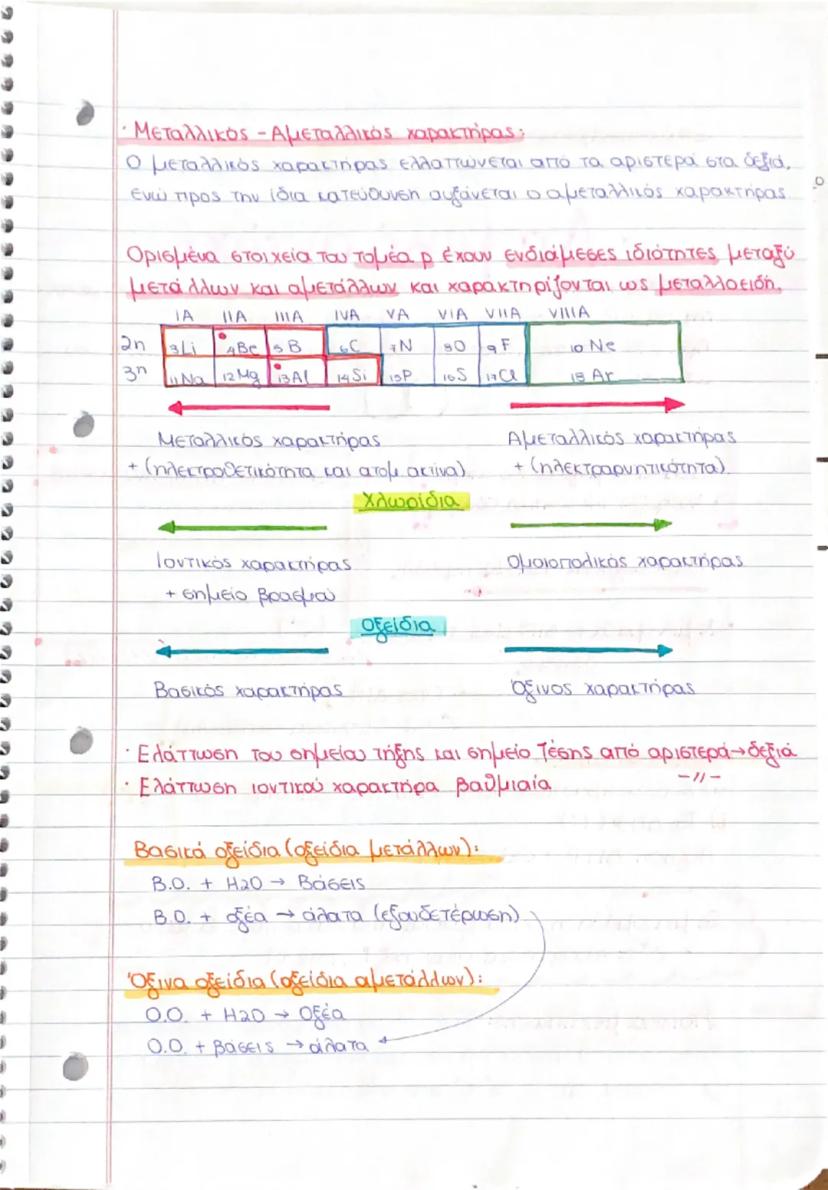 · Μεταλλικός - Αμεταλλικός χαρακτήρας:
Ο μεταλλικός χαρακτήρας ελλαττώνεται από τα αριστερά στα δεξιά,
ενώ προς την ίδια κατεύθυνση αυξάνεται ο αμεταλλικός χαρακτήρας
Ορισμένα στοιχεία του τομέα p έχουν ενδιάμεσες ιδιότητες μεταξύ
μετάλλων και αμετάλλων και χαρακτηρίζονται ως μεταλλοειδή.
IA IIA IIIA IVA VA VIA VIIA VIIIA
2η 3Li 4Be 5B 6C 7N 8O 9F 10Ne
3η 11Na 12Mg 13Al 14Si 15P 16S 17Cl 18Ar
Μεταλλικός χαρακτήρας Αμεταλλικός χαρακτήρας
+ (ηλεκτροθετικότητα και ατομ. ακτίνα) + (ηλεκτραρνητικότητα)
Χλωρίδια
Ιοντικός χαρακτήρας Ομοιοπολικός χαρακτήρας
+ σημείο βρασμού
Οξείδια
Βασικός χαρακτήρας Όξινος χαρακτήρας
· Ελάττωση του σημείου τήξης και σημείο ζέσης από αριστερά→δεξιά
· Ελάττωση ιοντικού χαρακτήρα βαθμιαία -//-
Βασικά οξείδια (οξείδια μετάλλων):
Β.Ο. + H2O → Βάσεις
Β.Ο. + οξέα → άλατα (εξουδετέρωση)
Όξινα οξείδια (οξείδια αμετάλλων):
Ο.Ο. + H2O → Οξέα
Ο.Ο. + βάσεις → άλατα